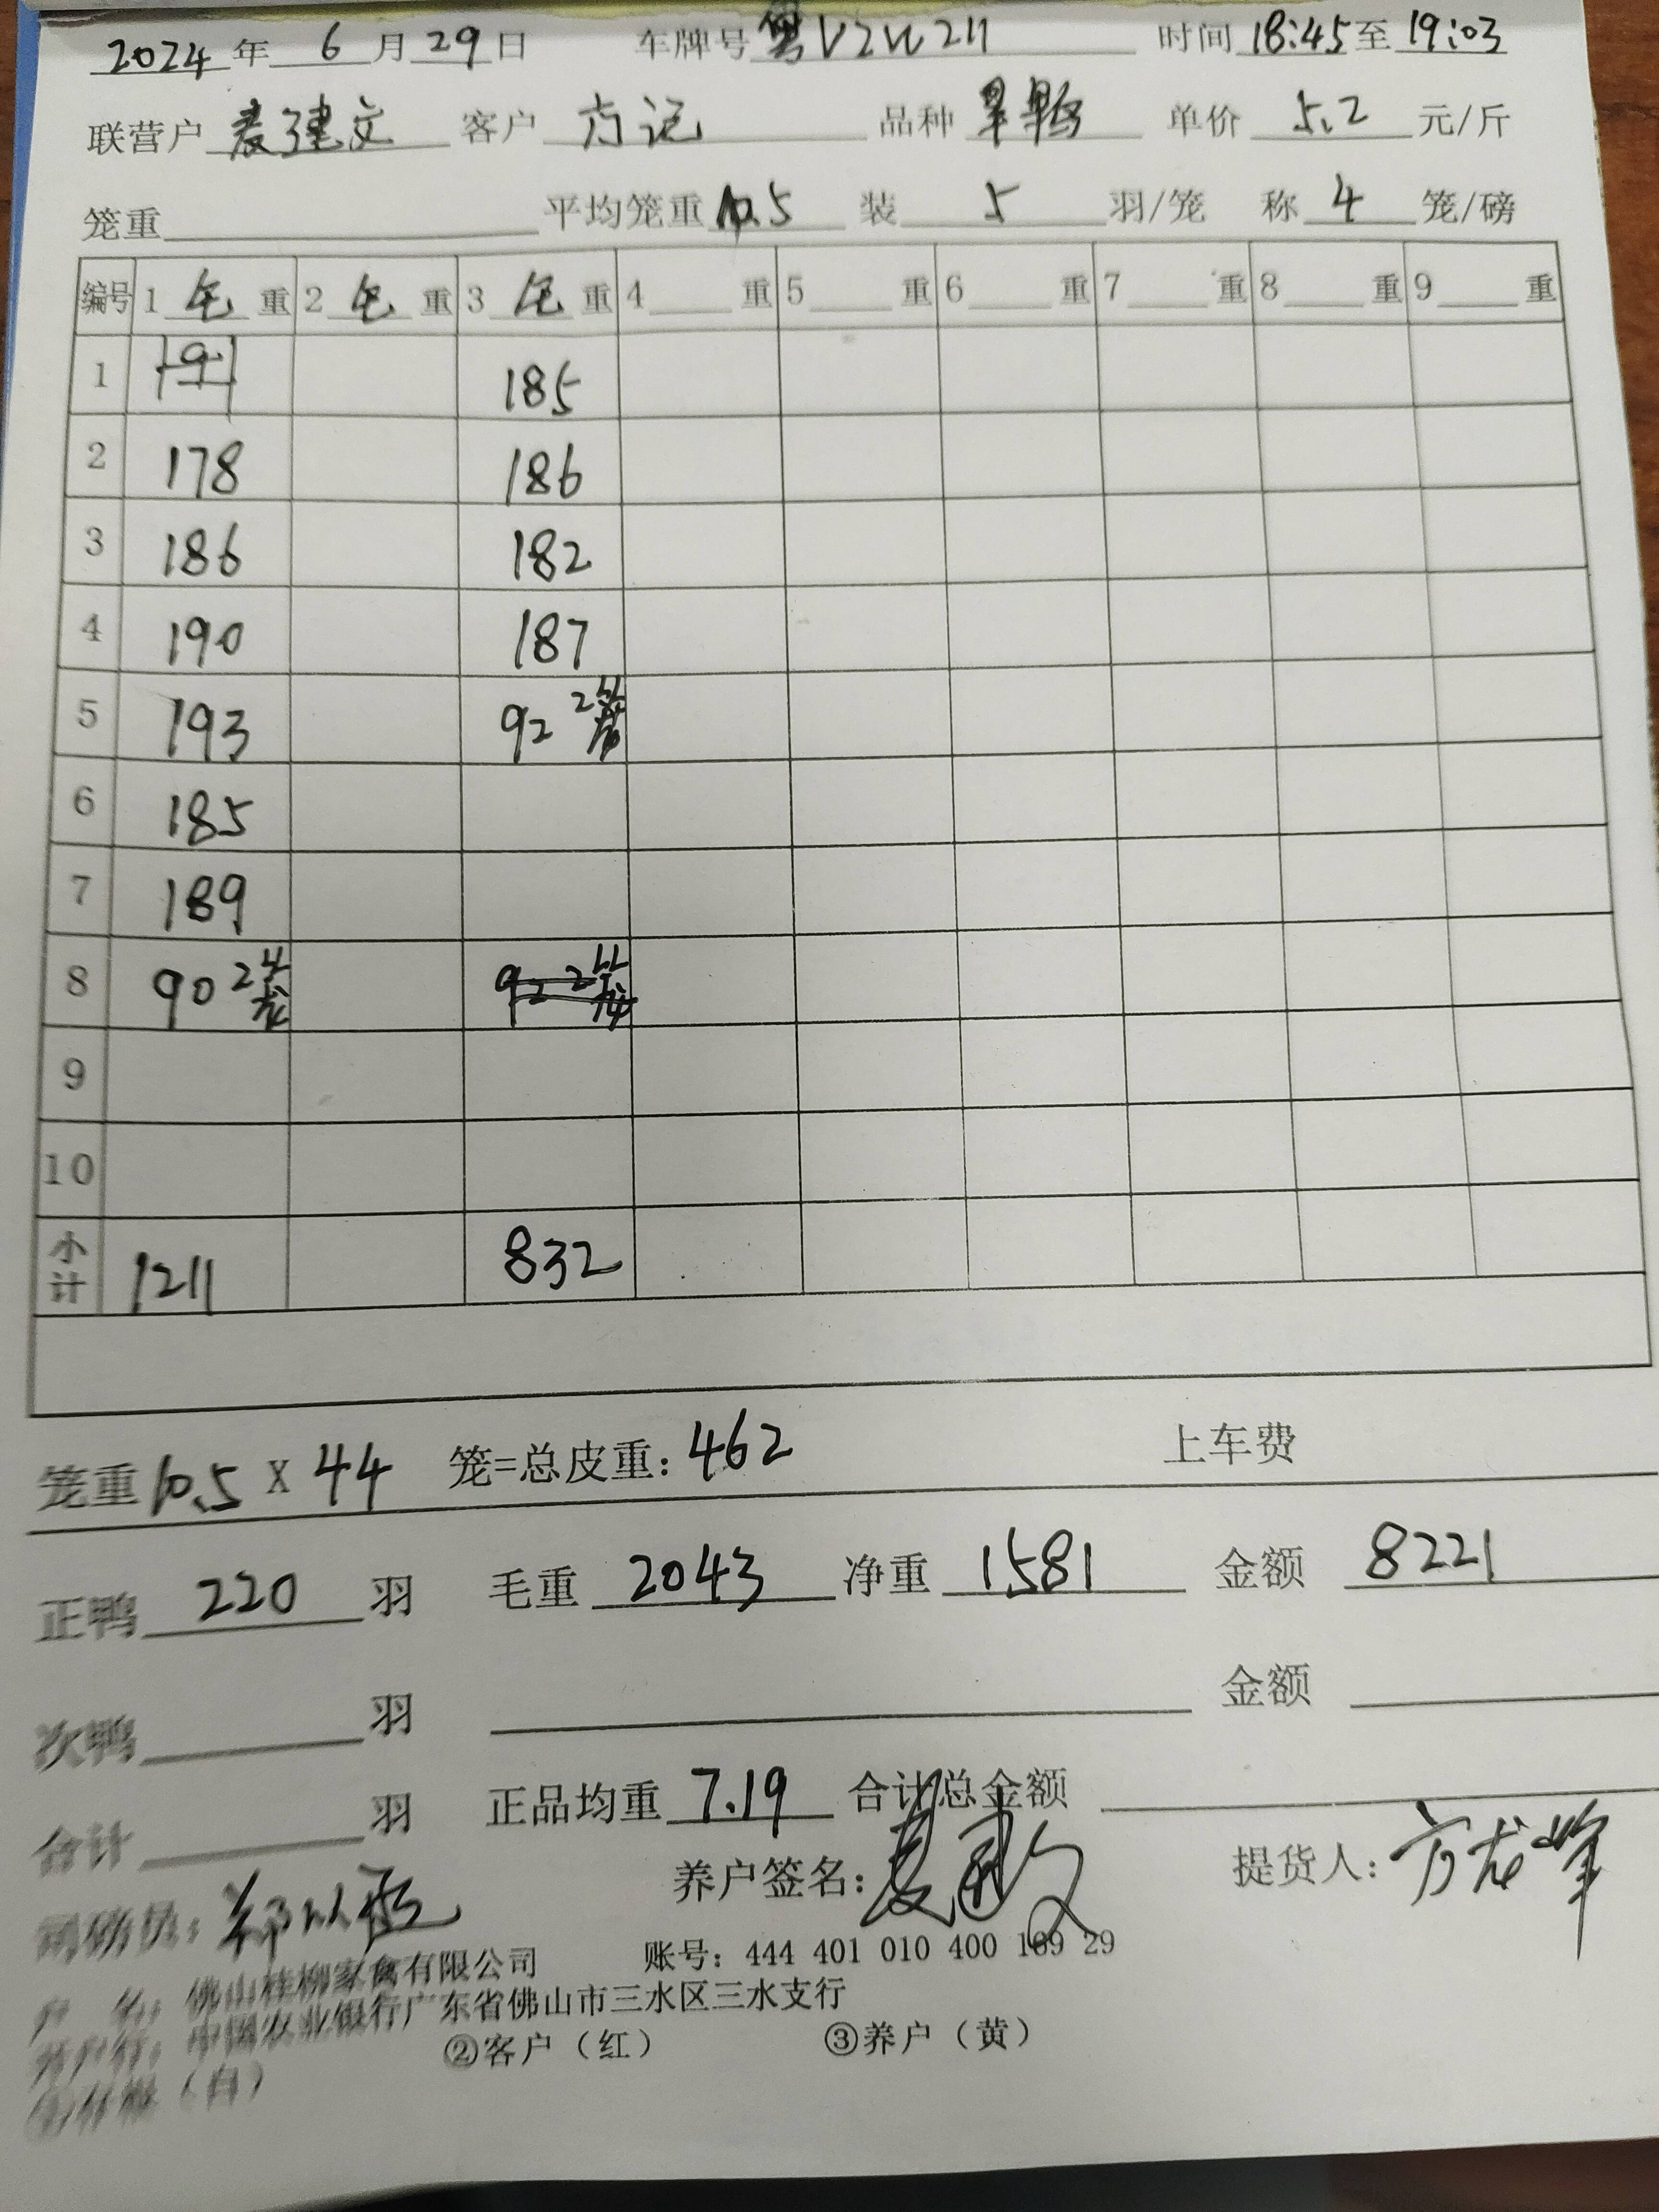 2024年 6 月 29 日 车牌号 粤V2W211 时间 18:45 至 19:03
联营户 麦建文 客户 方记 品种 旱鸭 单价 5.2 元/斤
笼重 平均笼重 10.5 装 5 羽/笼 称 4 笼/磅
编号 1 毛 重 2 毛 重 3 毛 重 4 重 5 重 6 重 7 重 8 重 9 重
1 185
2 178 186
3 186 182
4 190 187
5 193 92 2笼
6 185
7 189
8 90 2笼 92 2笼
9
10
小计 1211 832
笼重 10.5 X 44 笼=总皮重: 462 上车费
正鸭 220 羽 毛重 2043 净重 1581 金额 8221
次鸭 羽 金额
合计 羽 正品均重 7.19 合计总金额
司磅员: 养户签名: 麦建文 提货人: 方龙峰
户 名: 佛山桂柳家禽有限公司 账号: 444 401 010 400 169 29
开户行: 中国农业银行广东省佛山市三水区三水支行
②客户（红） ③养户（黄）